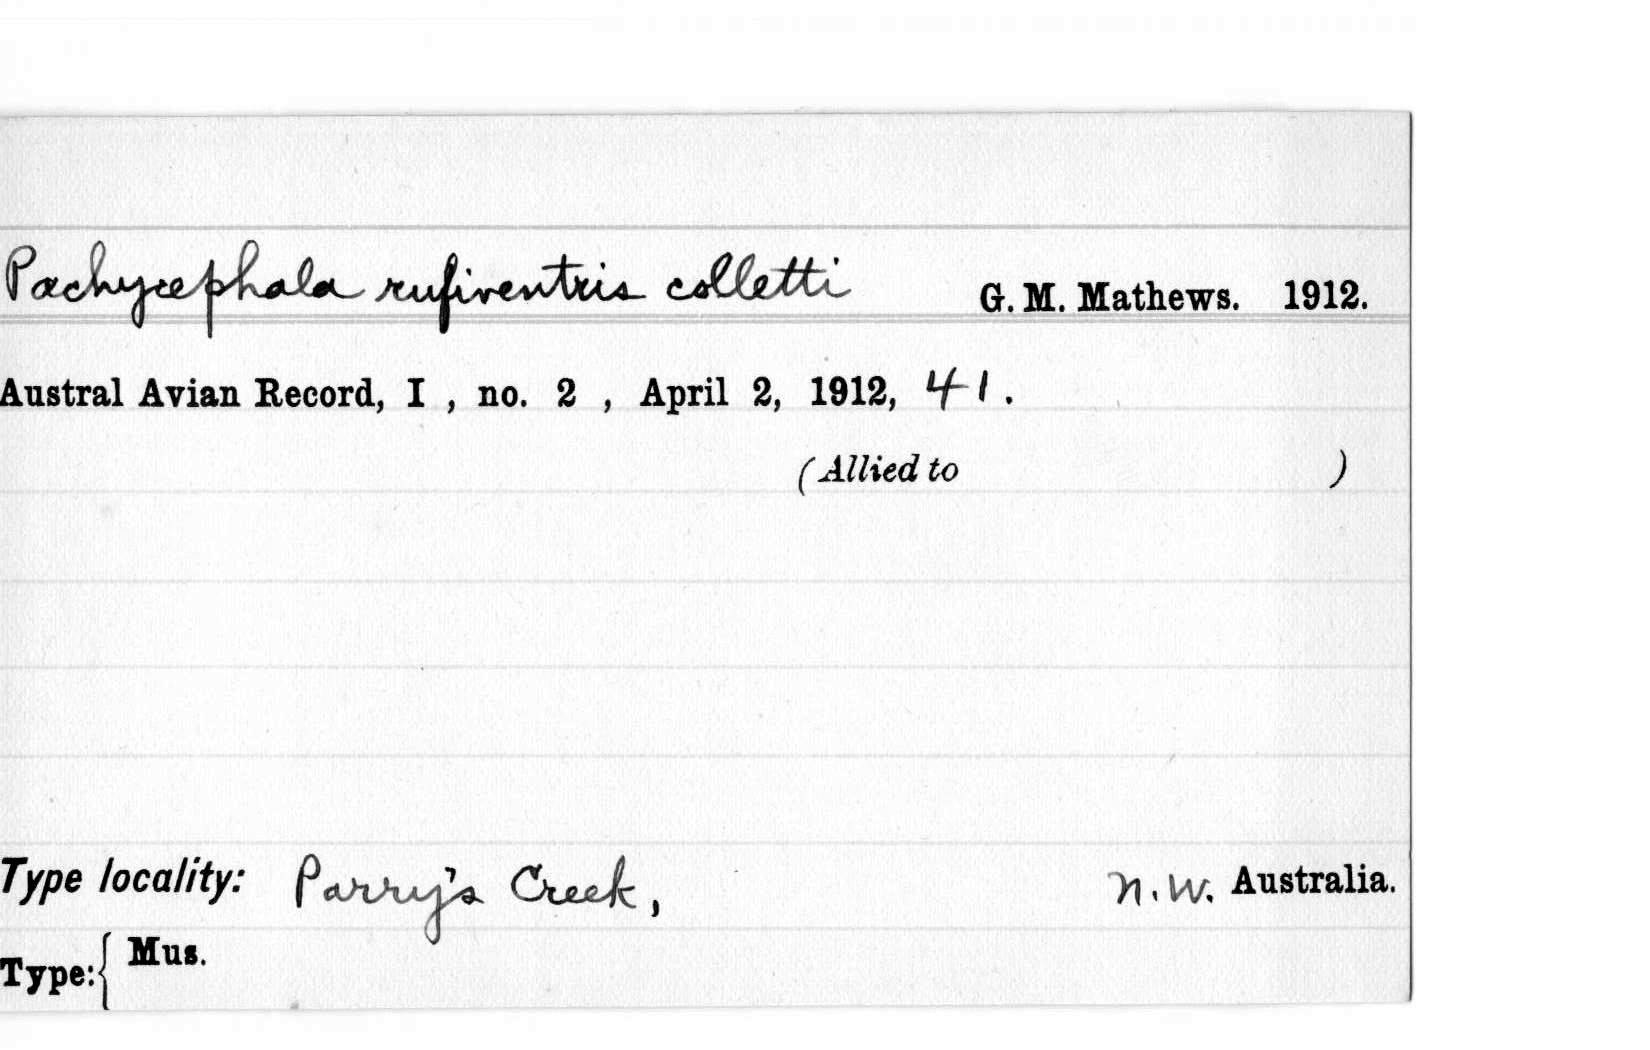 Pachycephala rufiventris colletti G. M. Mathews. 1912.
Austral Avian Record, I , no. 2 , April 2, 1912, 41.
(Allied to )
Type locality: Parry's Creek, N.W. Australia.
Type: { Mus.